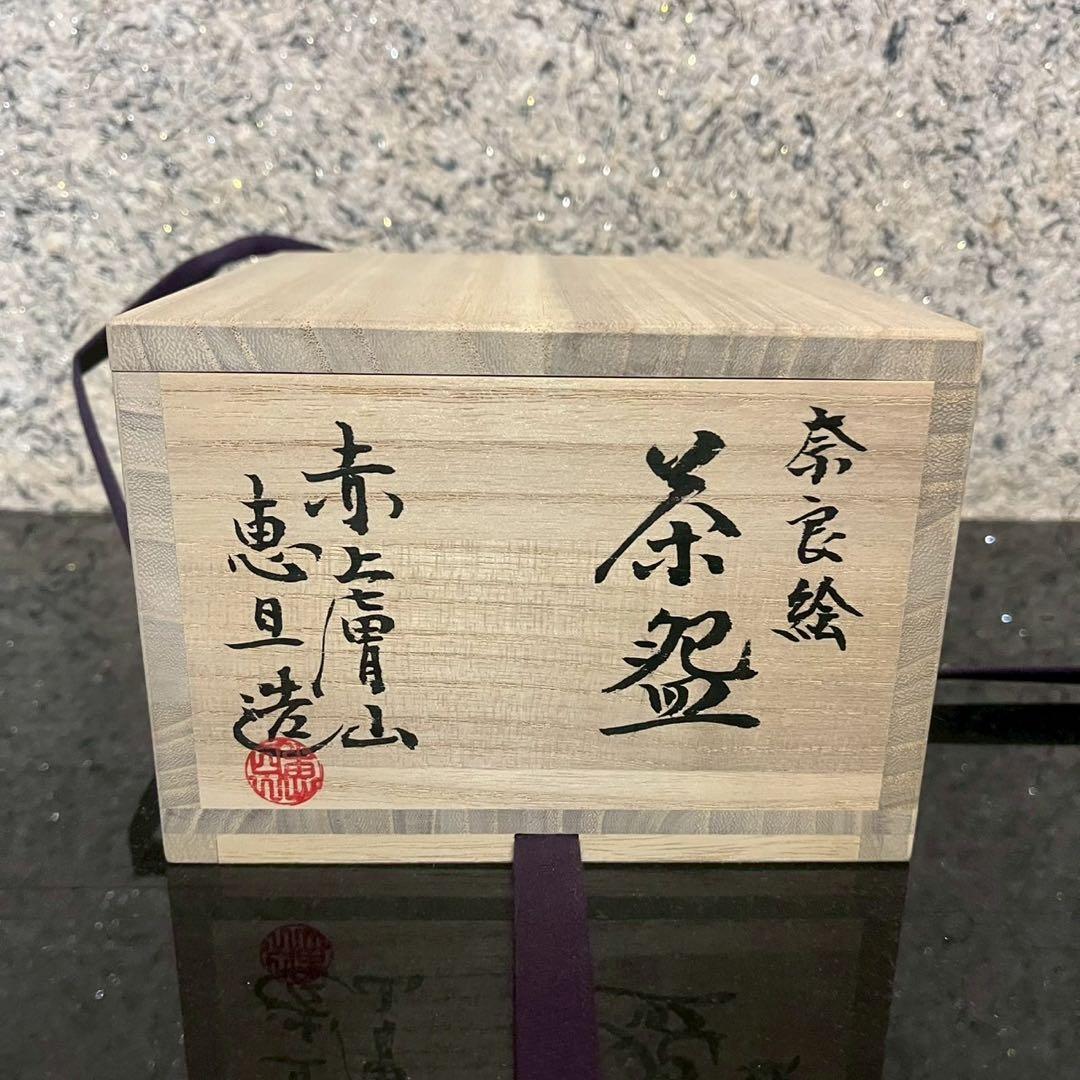 奈良絵
茶盌
赤膚山
恵旦造